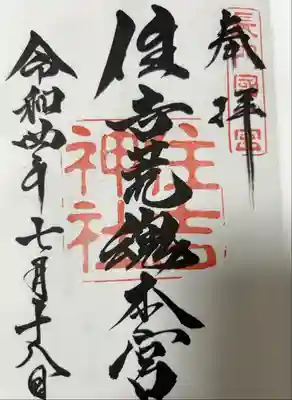 奉拝
長門國一宮
住吉荒魂本宮
住吉神社
令和四年七月十八日